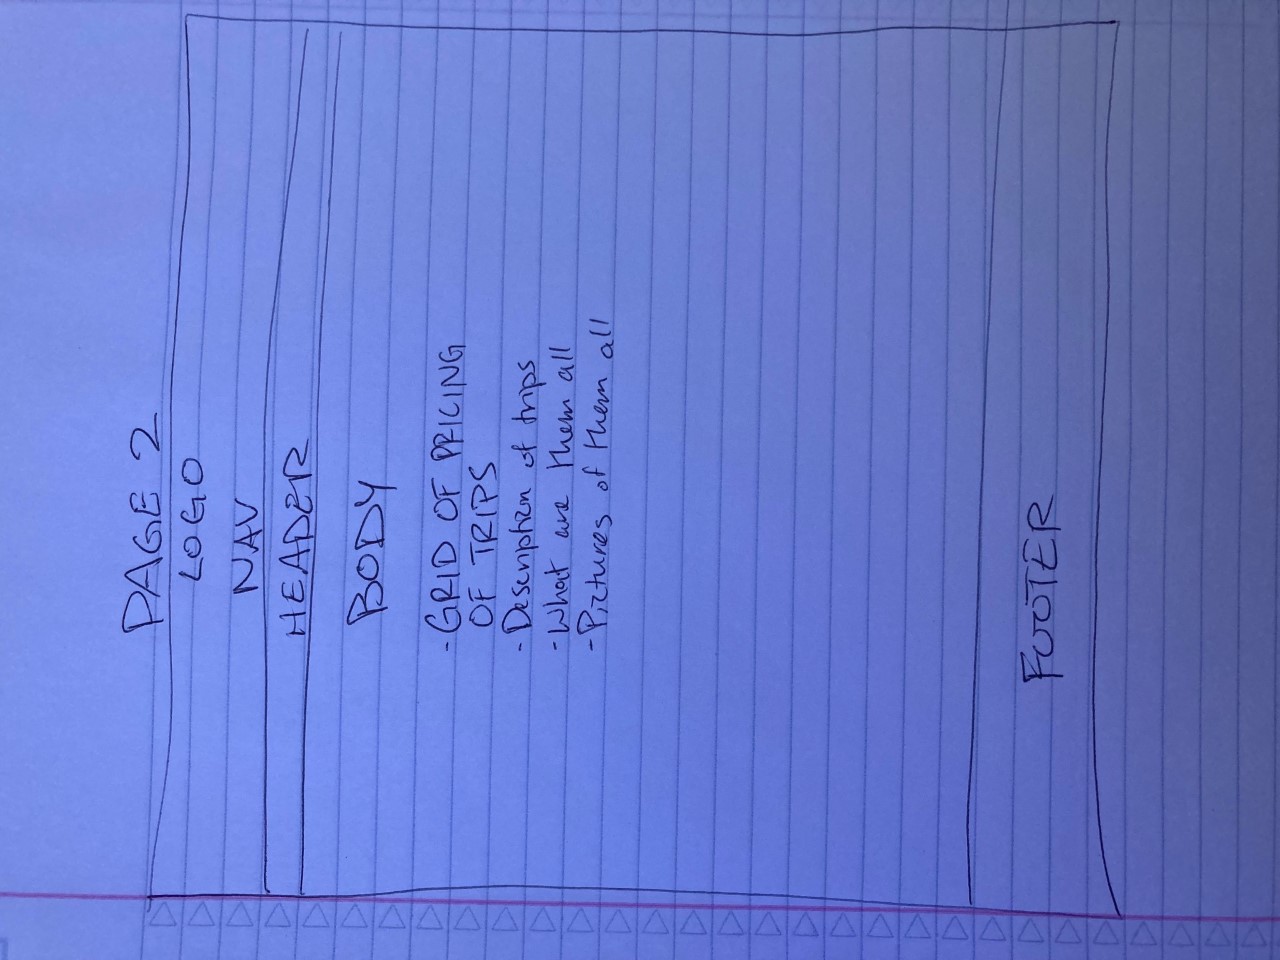 PAGE 2
LOGO
NAV
HEADER
BODY
- GRID OF PRICING
OF TRIPS
- Description of trips
- What are them all
- Pictures of them all
FOOTER